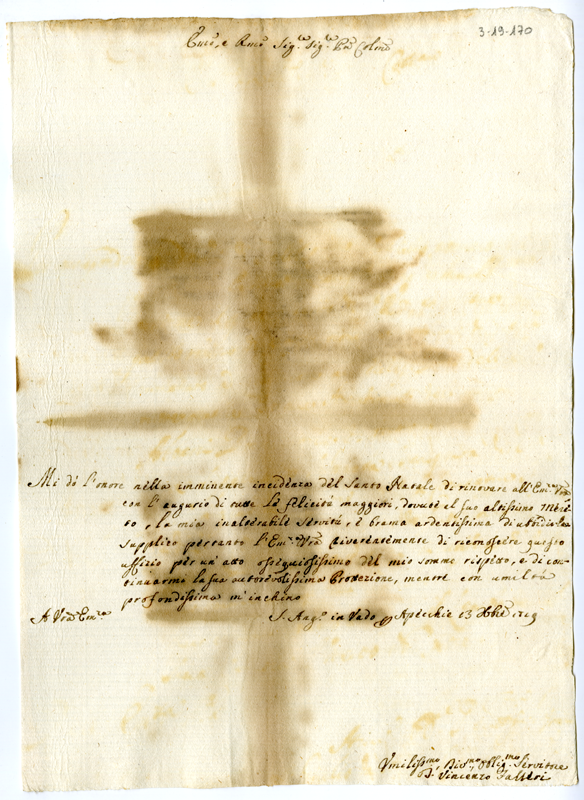 3-19-170
Em̃o, e Rmõ Sig.re Sig.re Prõn Colmõ
Mi dò l'onore nella imminente incidenza del Santo Natale di rinovare all'Em.za Vrã
con l'augurio di tutte le felicità maggiori, dovute al suo altissimo Meri-
to, la mia inalterabile servitù, e brama ardentissima di ubidirla
supplico pertanto l'Em.za Vrã riverentemente di riconoscere questo
uffizio per un'atto ossequiosissimo del mio sommo rispetto, e di con-
tinuarmi la sua autorevolissima Protezione, mentre con umiltà
profondissima m'inchino
A Vrã Em.za
S. Ang.o in Vado p Apecchie 13 Xbre
Vmiliss.mo, Div.mo, Obblig.mo Servitore
D. Vincenzo